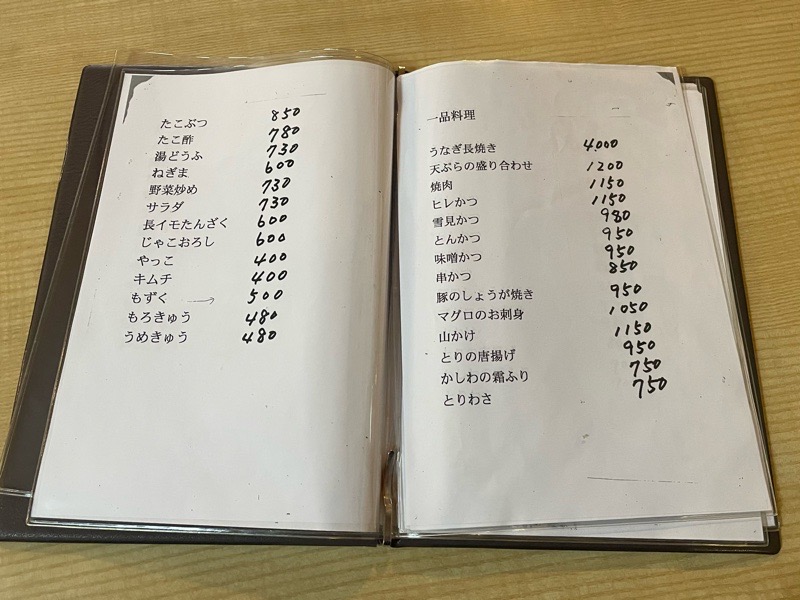 たこぶつ 850
たこ酢 780
湯どうふ 730
ねぎま 600
野菜炒め 730
サラダ 730
長イモたんざく 600
じゃこおろし 600
やっこ 400
キムチ 400
もずく → 500
もろきゅう 480
うめきゅう 480
一品料理
うなぎ長焼き 4000
天ぷらの盛り合わせ 1200
焼肉 1150
ヒレかつ 1150
雪見かつ 980
とんかつ 950
味噌かつ 950
串かつ 850
豚のしょうが焼き 950
マグロのお刺身 1050
山かけ 1150
とりの唐揚げ 950
かしわの霜ふり 750
とりわさ 750